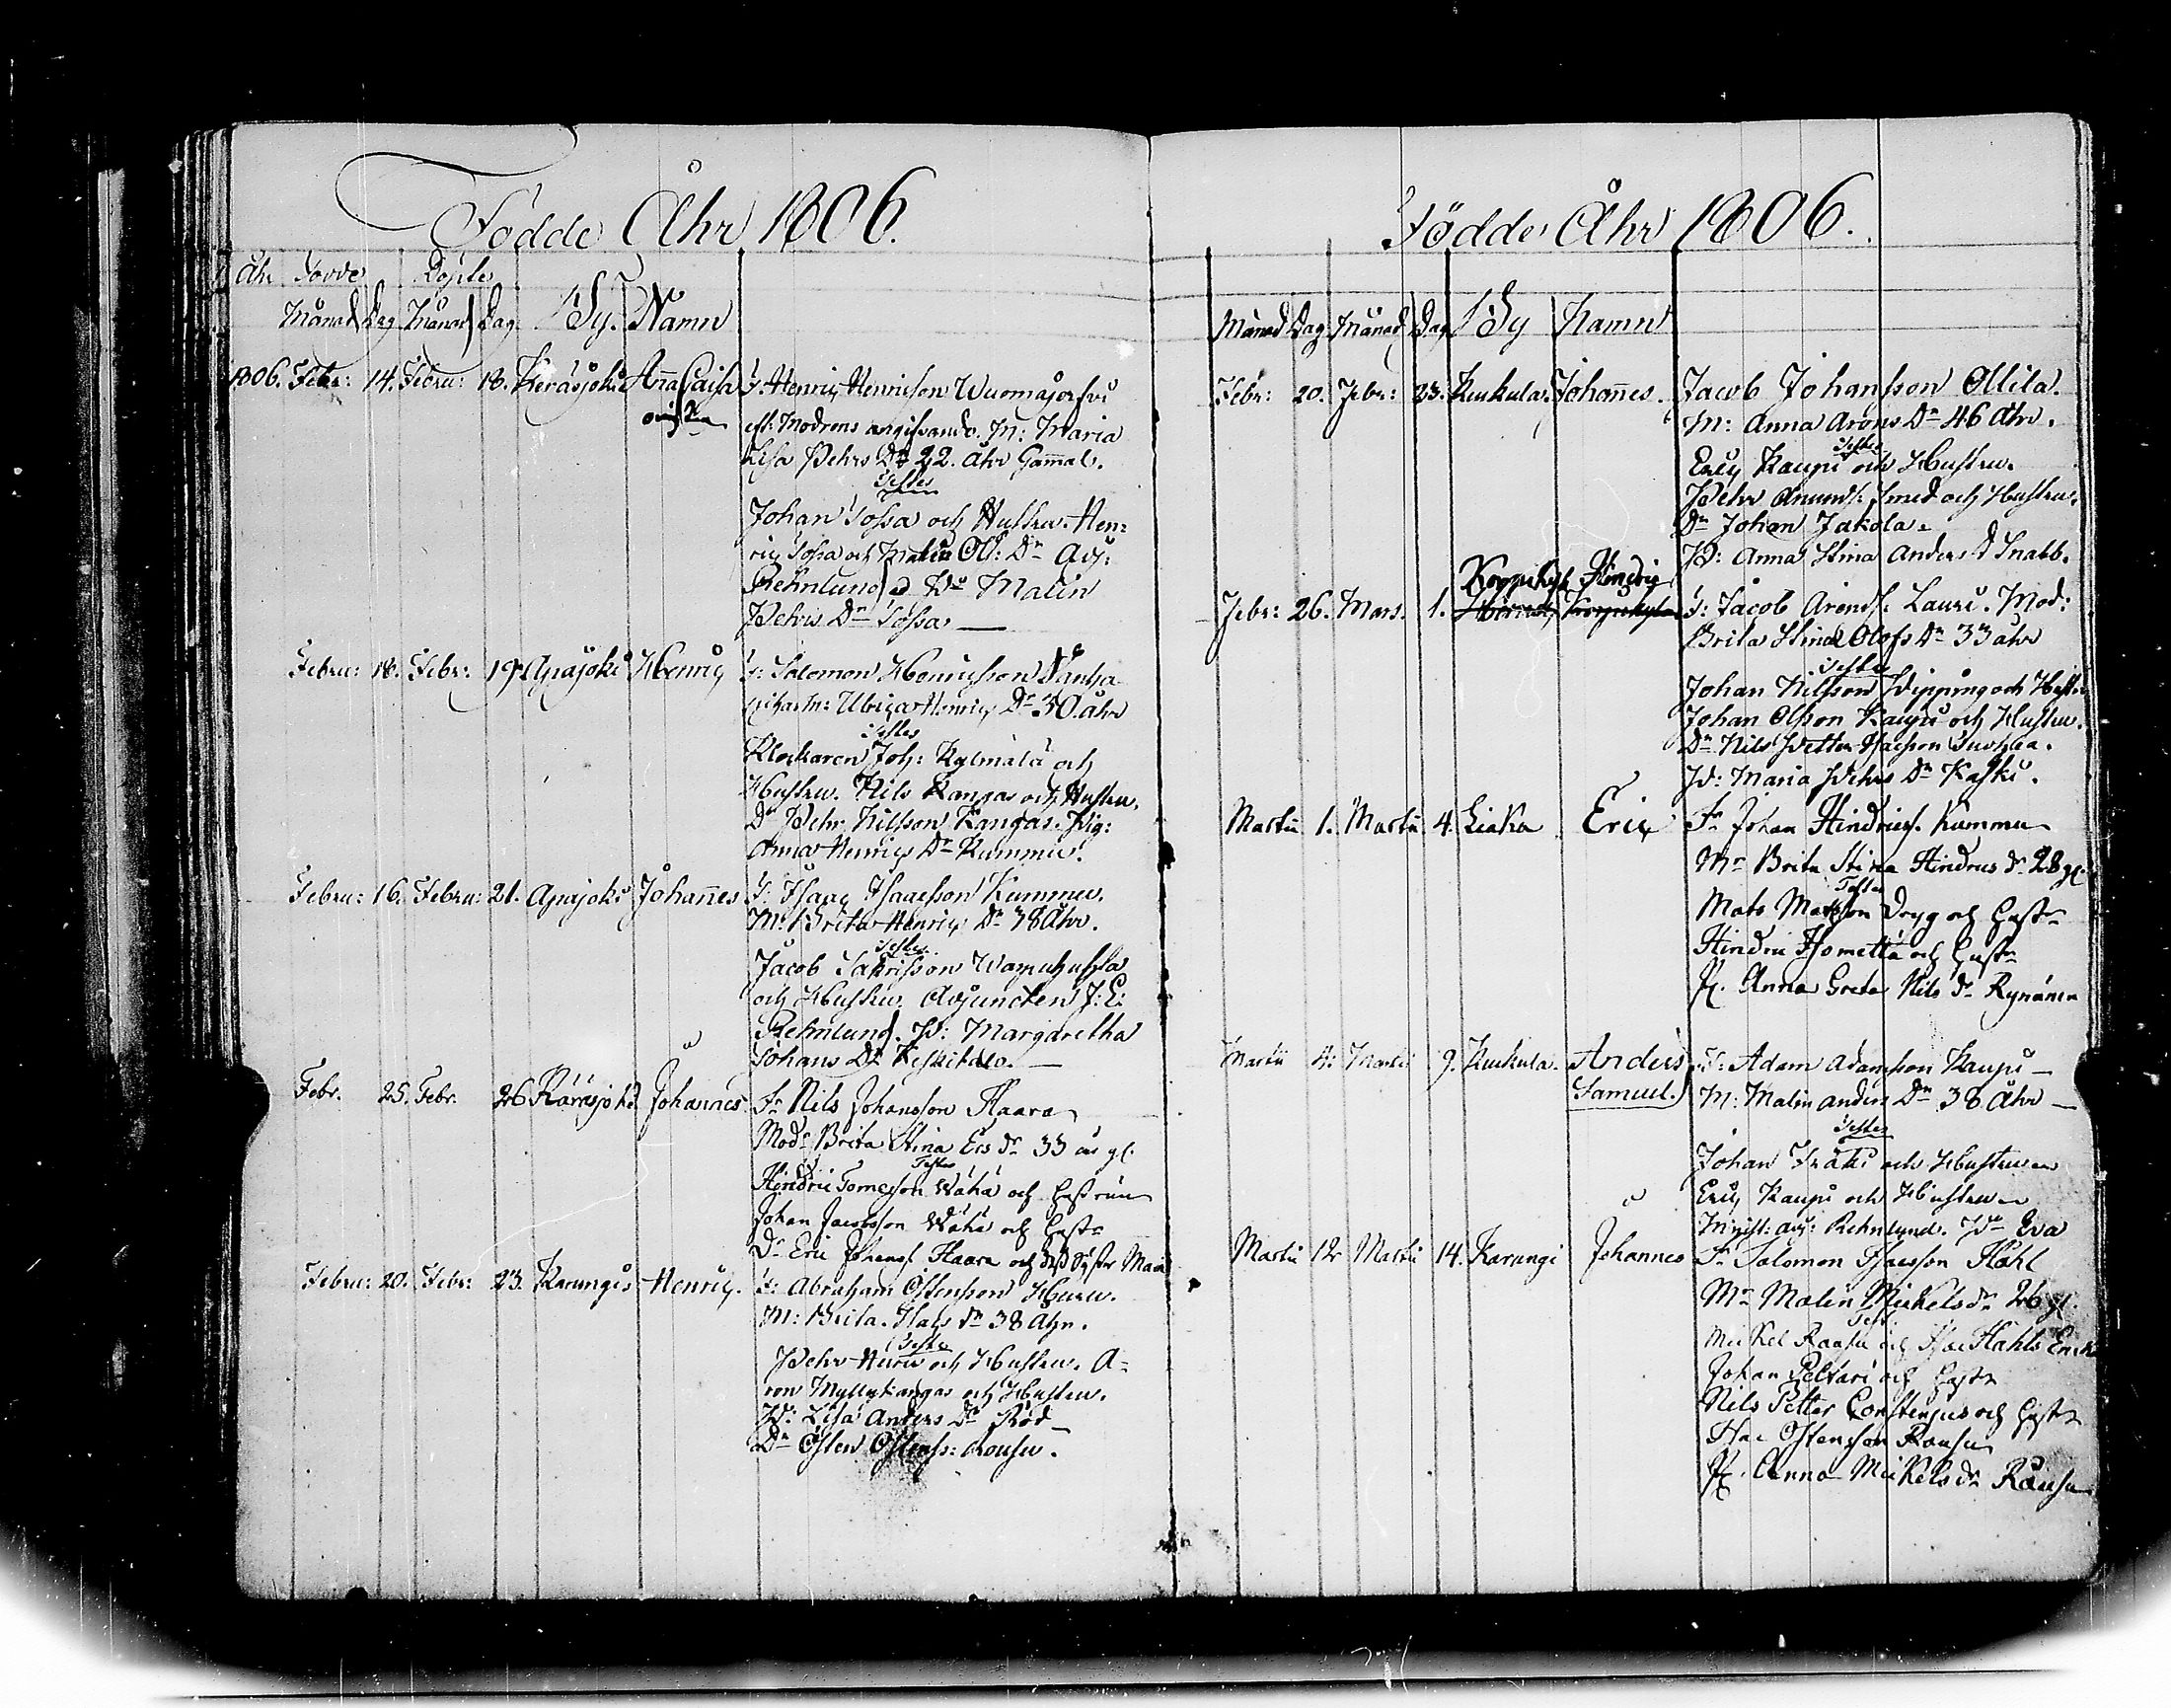 Födde Åhr 1806.
Åhr Födde Döpte
Månad Dag Månad Dag By. Namn
1806. Febr: 14. Febru: 18. Keräsjoki Aña Caisa F: Henric Henricson Wuomajerfvi
oägta eft: Modrens angifvande. M: Maria
Lisa Pehrs Dr 22. åhr Gam̄al.
Testes
Johan Tossa och Hustru. Hen:
ric Tossa och Malin Ol: Dr Adj:
Rehnlund P: Malin
Pehrs Dr Tossa
Febru: 18. Febr: 19. Apajoki Henric F: Salomon Henricsson
M: Ulrica Henrics Dr 30. åhr
Testes
Klockaren Joh: Kylmälä och
Hustru. Nils Kangas och Hustru.
Dr Pehr Nilsson Kangas. Pig:
Anna Henrics Dr Kummu.
Febru: 16. Febru: 21. Apajoki Johan̄es F: Isaac Isacsson Kummu.
M: Brita Henrics Dr 38 Åhr.
Testes
Jacob
och Hustru. Adjuncten J: E:
Rehnlund. P: Margaretha
Johans Dr Keskitalo.
Febr. 25. Febr. 26 Räräsjoki Johannes Fr Nils Johansson Haara
Modr Brita Stina Ers dr 33 år gl.
Testes
Hindric Tomesson Wähä och hustrun
Johan Jacobsson Wähä och hustr
Dr Eric Johanss. Haara och dess Syster Maria
Febru: 20. Febr: 23. Karungi Henric. F: Abraham Ostensson Huru.
M: Brita Hals dr 38 Åhr.
Testes
Pehr Huru och Hustru. A-
ron Myllykangas och Hustru.
P: Lisa Anders Dr Röd
Dr Östen Ostenss: Rousu.
Födde Åhr 1806.
Månad Dag Månad Dag By Namn
Febr: 20. Febr: 23. Kukula. Johan̄es. Jacob Johansson Ollila.
M: Anna Arons Dr 46 Åhr.
Testes
Eric Kaupi och Hustru.
Pehr Amunds: Smed och Hustru.
Dr Johan Jakola.
P: Anna Stina Anders d Snabb.
Korpikylä Hindric
Febr: 26. Mars. 1. Henric Korpikylä F: Jacob Aronss: Lauri. Mod:
Brita Stina Olofs Dr 33 åhr
Testes
Johan Nilsson Wipping och Hustru
Johan Olsson Kaupi och Hustru.
Dr Nils Petter Isacsson
P: Maria Pehrs Dr Kaski.
Martii 1. Martii 4. Liaka Eric Fr Johan Hindricss. Kummu
Mr Brita Stina Hindrics dr 28 gl.
Testes
Mats Matsson Dryg och hustr
Hindric Isometta och hustr
P. Anna Greta Nils dr Rynänen
Martii 4. Martii 9. Kukula. Anders F: Adam Adamsson Kaupi
Samuel. M: Malin Anders Dr 38 Åhr
Testes
Johan Fräki och Hustru
Eric Kaupi och Hustru
Magist: adj: Rehnlund. Pr Eva
Martii 12 Martii 14. Karungi Johannes Fr Salomon Isacsson Stahl
Mr Malin Mickels dr 26 gl.
Test.
Mickel Rousu och Isac Stahls Enka
Johan Peltari och hustr
Nils Petter Corstenius och hustr
Isac Ostensson Rousu
P. Anna Mickels dr Rousu